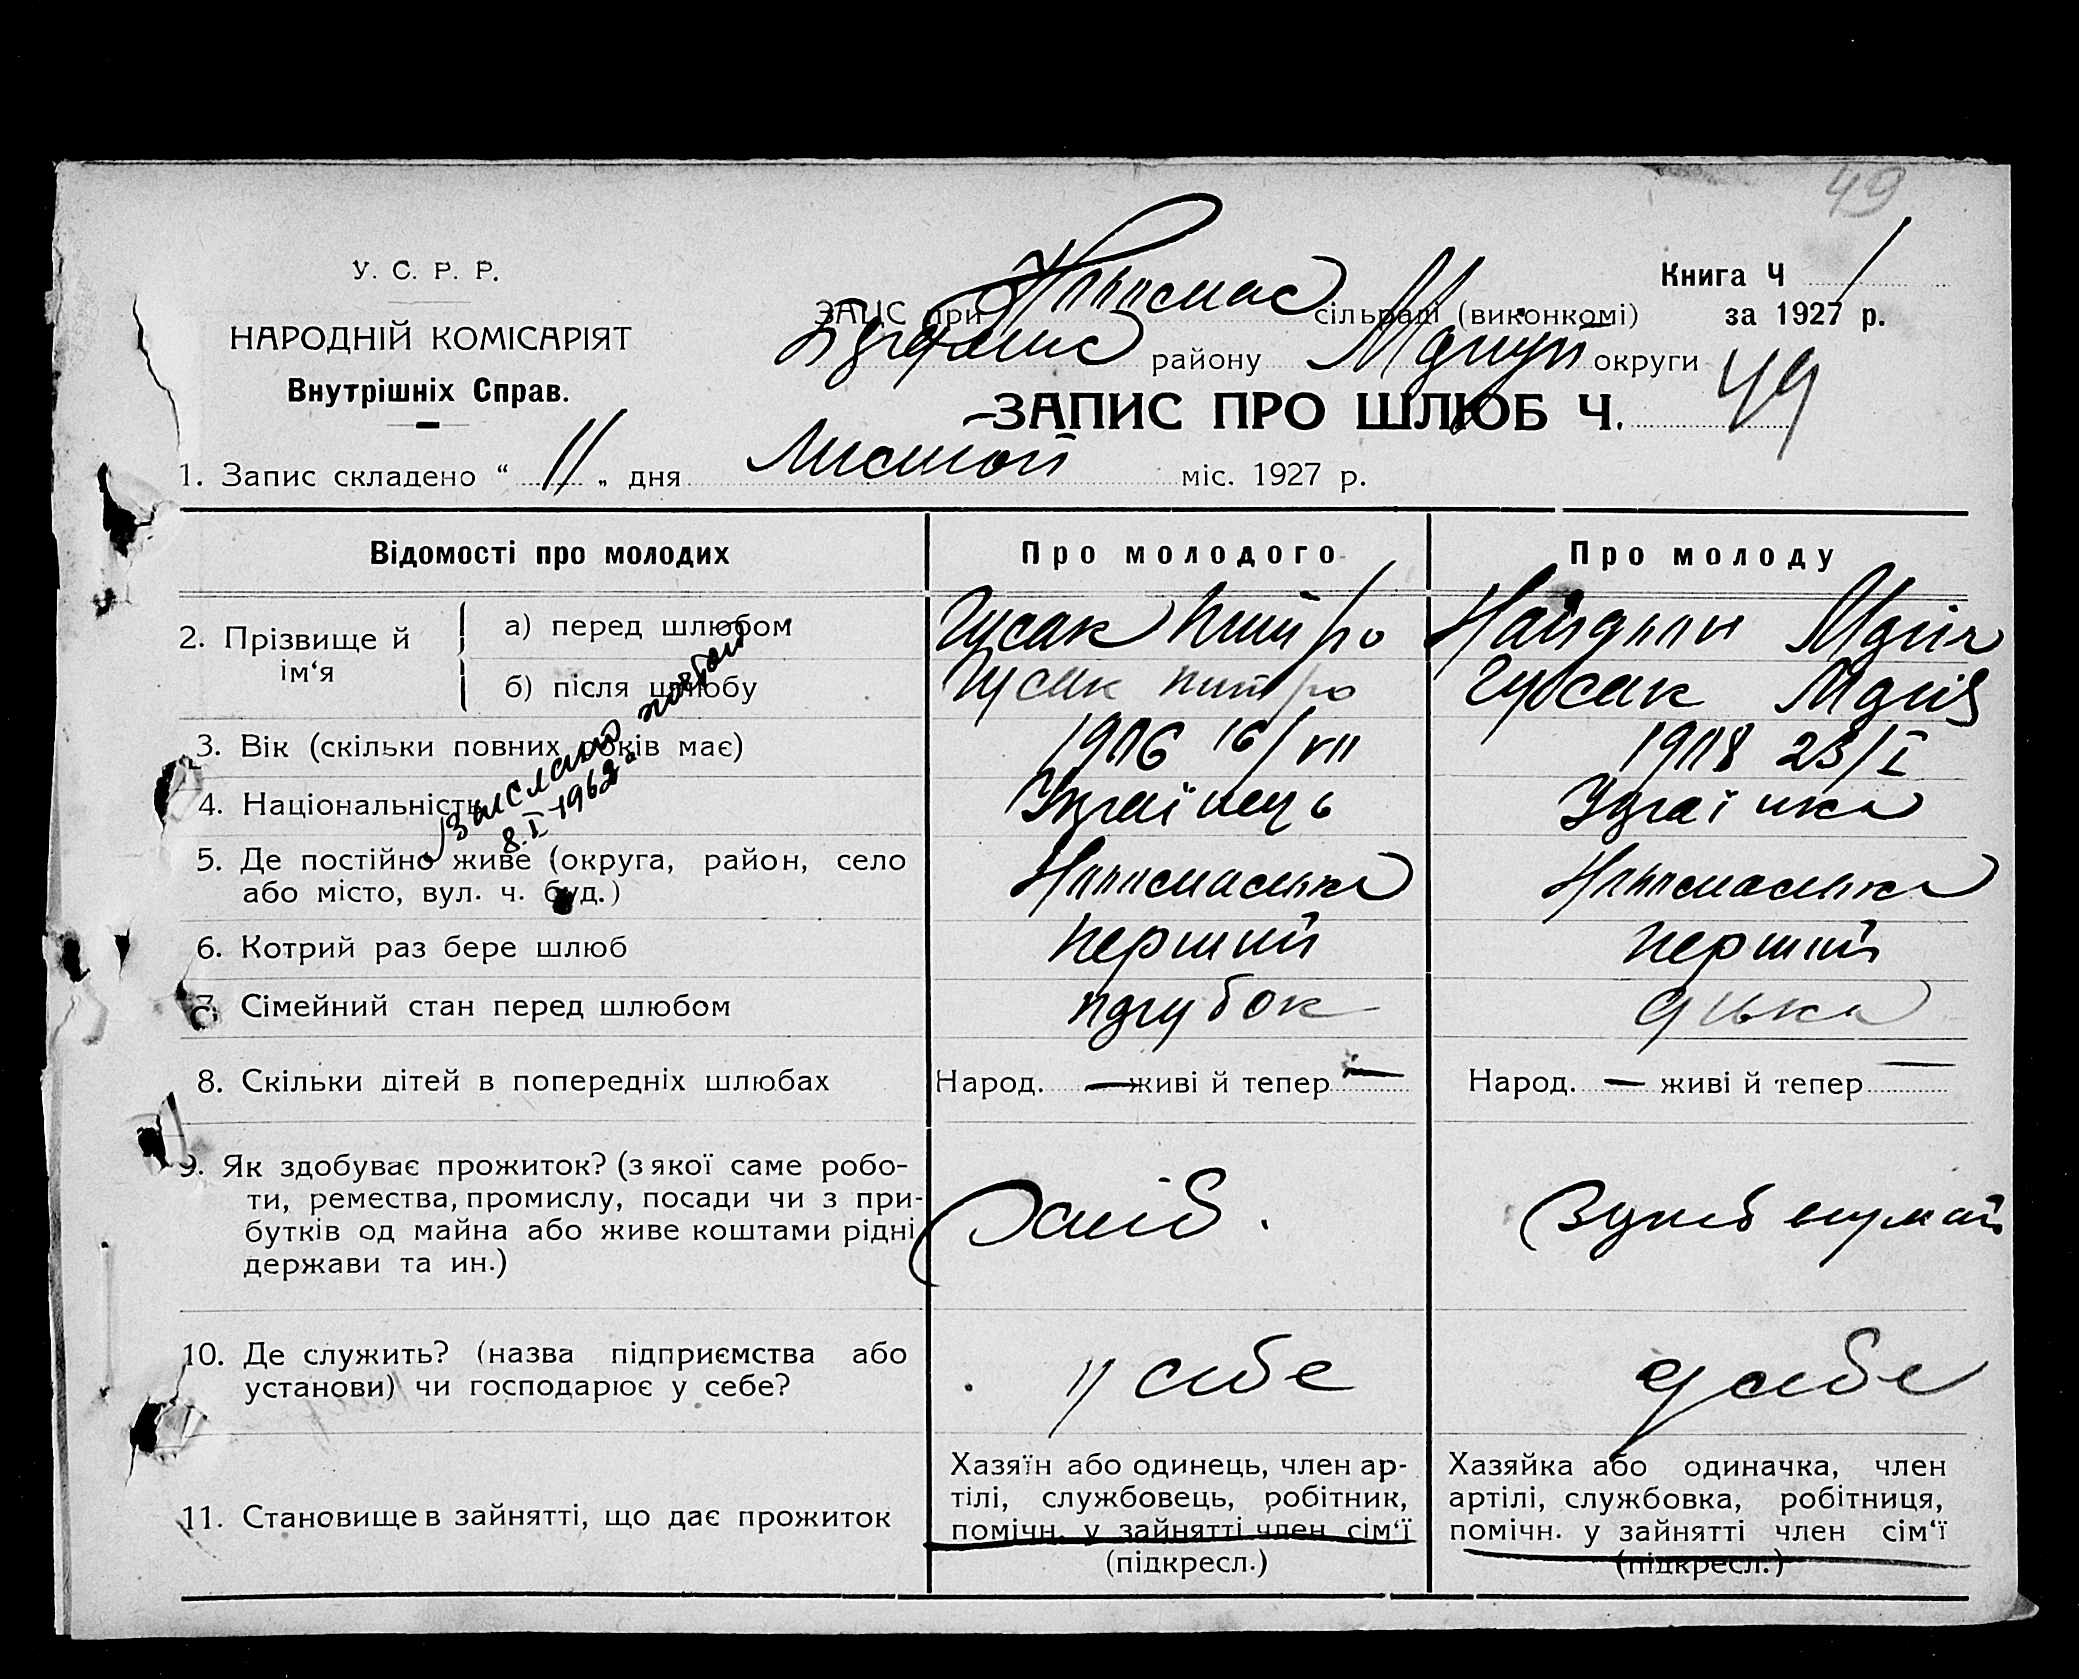 49
У. С. Р. Р.
НАРОДНІЙ КОМІСАРІЯТ
Внутрішніх Справ.
Книга Ч 1
ЗАПИС при сільраді (виконкомі) за 1927 р.
району округи
ЗАПИС ПРО ШЛЮБ Ч. 49
1. Запис складено “ 11 „ дня міс. 1927 р.
Відомості про молодих Про молодого Про молоду
2. Прізвище й ім‘я
а) перед шлюбом Гусак Митро Марія
б) після шлюбу Гусак Митро Гусак Марія
3. Вік (скільки повних років має) 1906 16/VII 1908 23/I
4. Національність Українець Українка
5. Де постійно живе (округа, район, село
або місто, вул. ч. буд.)
8.I-1962
6. Котрий раз бере шлюб перший перший
7. Сімейний стан перед шлюбом парубок дівка
8. Скільки дітей в попередніх шлюбах Народ. — живі й тепер — Народ. — живі й тепер —
9. Як здобуває прожиток? (з якої саме робо-
ти, ремества, промислу, посади чи з при-
бутків од майна або живе коштами рідні
держави та ин.)
10. Де служить? (назва підприємства або
установи) чи господарює у себе? у себе у себе
11. Становище в зайнятті, що дає прожиток
Хазяїн або одинець, член ар-
тілі, службовець, робітник,
помічн. у зайнятті член сім‘ї
(підкресл.)
Хазяйка або одиначка, член
артілі, службовка, робітниця,
помічн. у зайнятті член сім‘ї
(підкресл.)